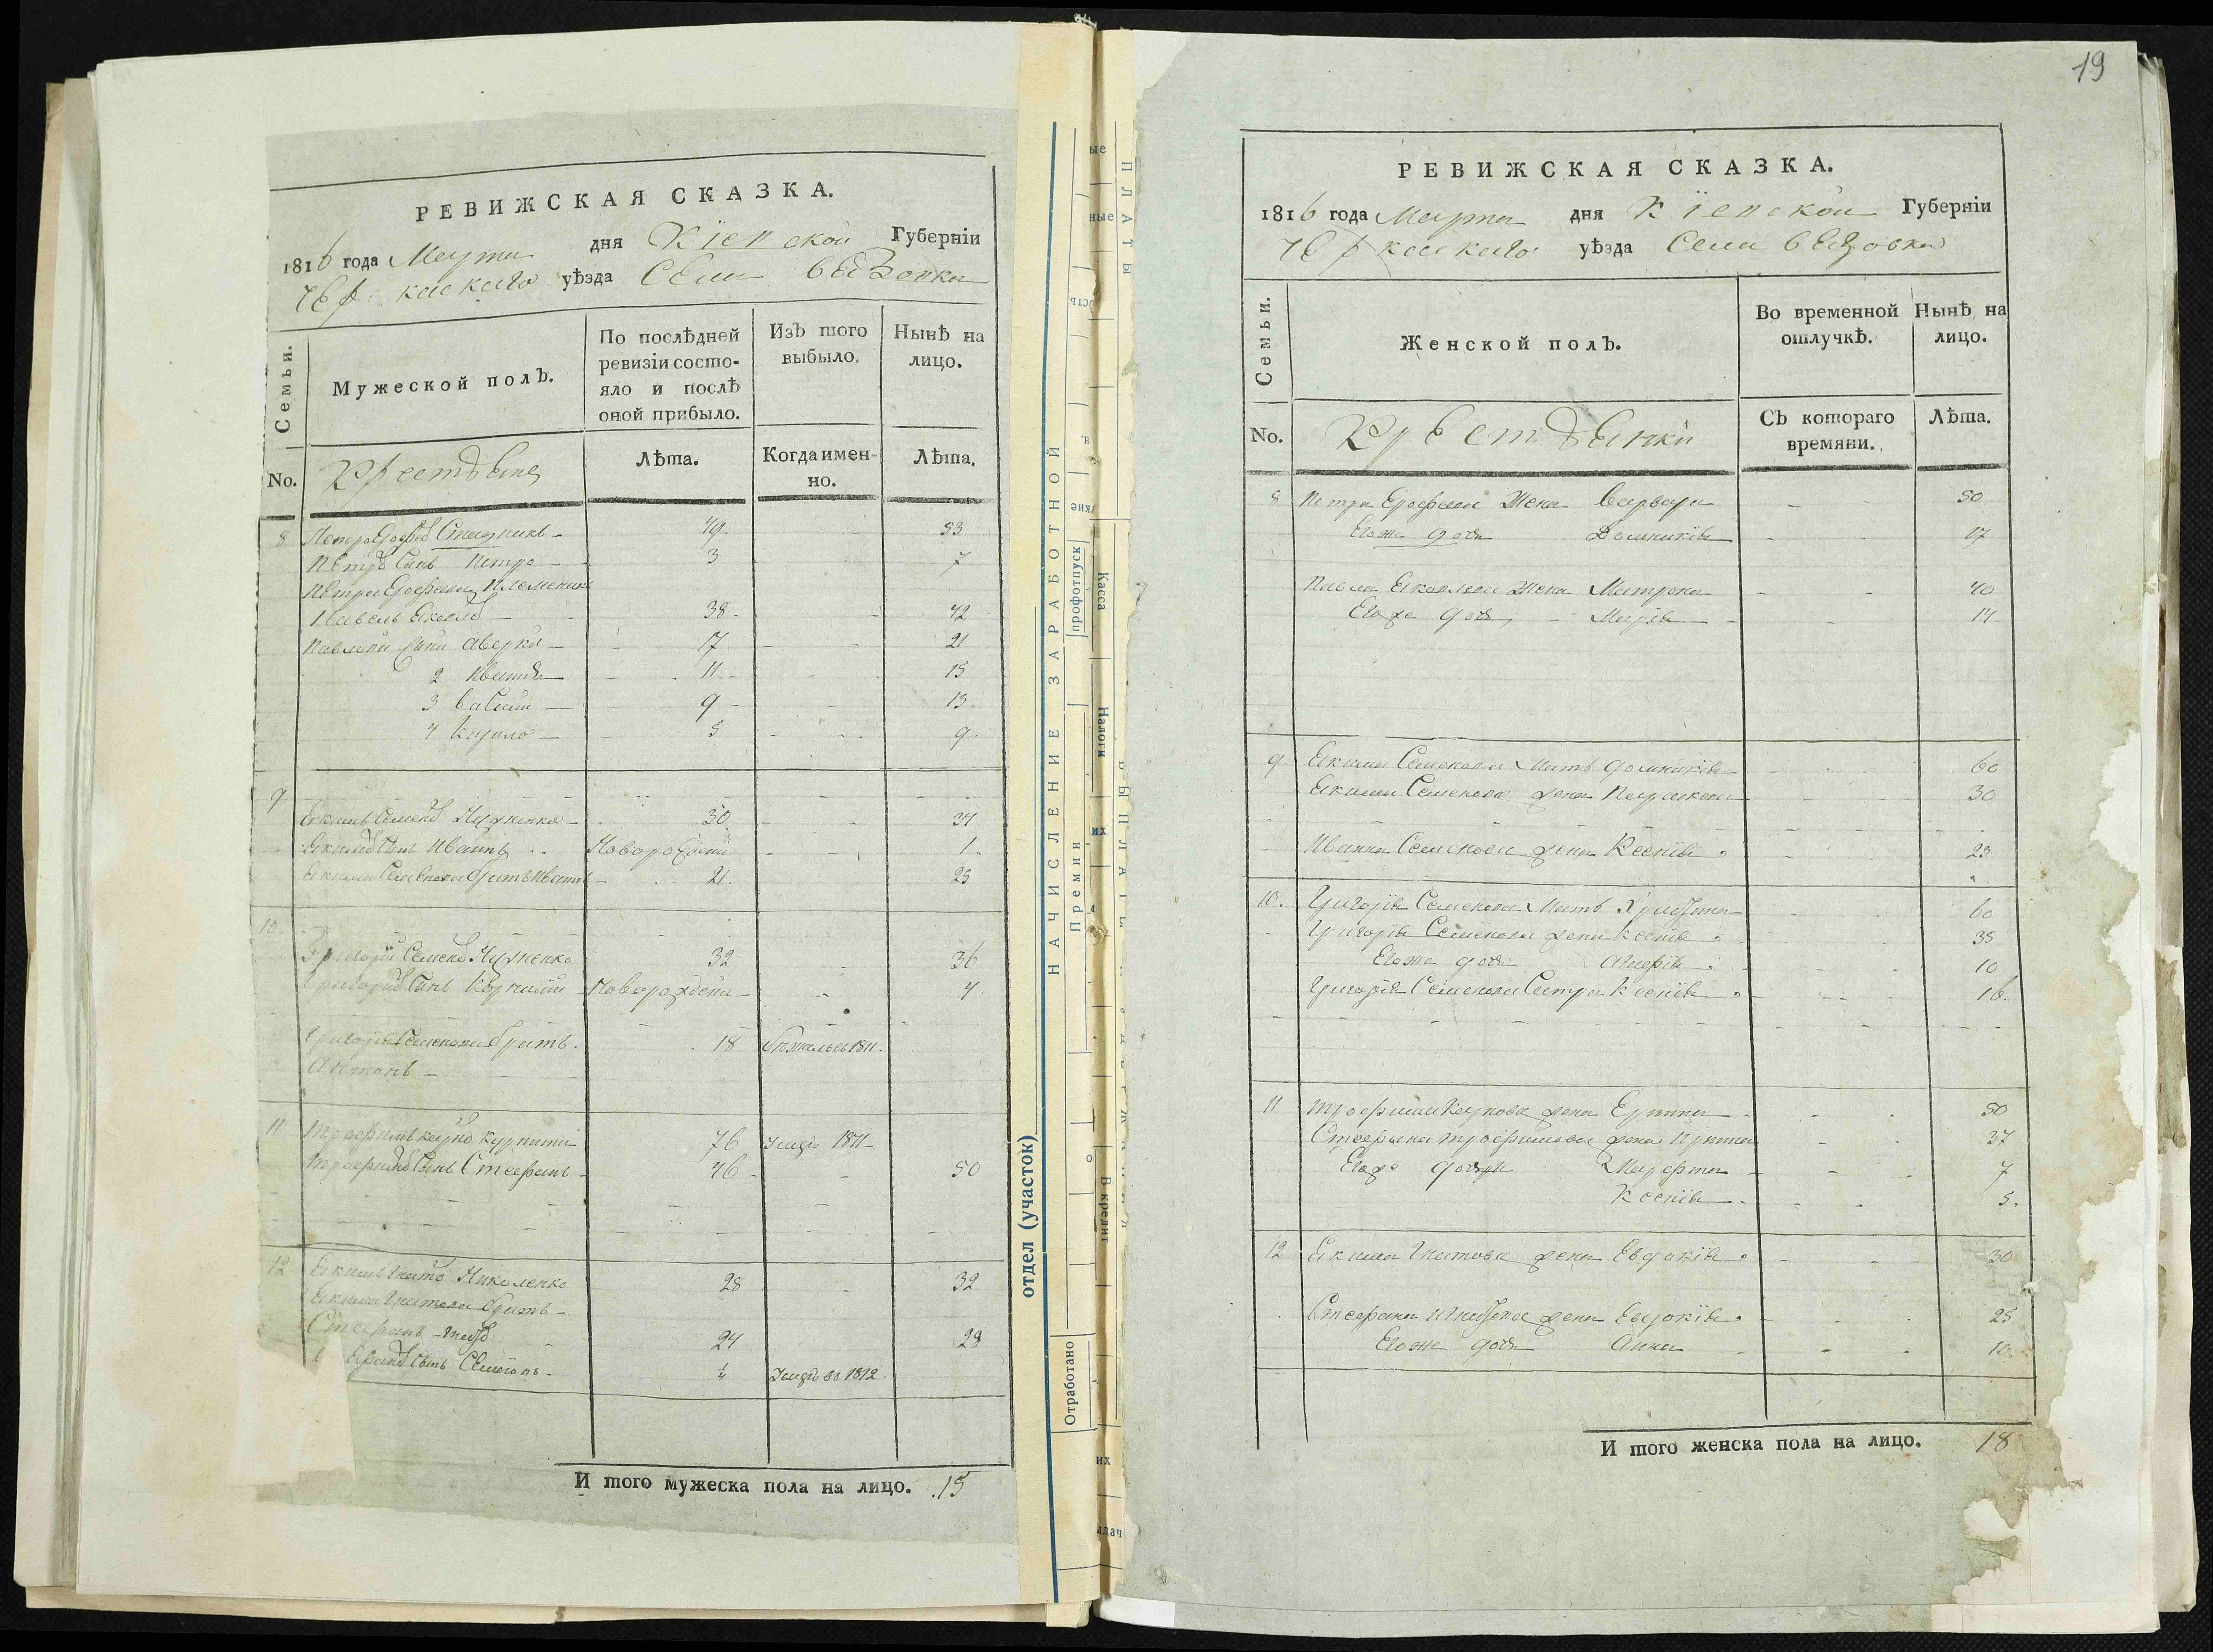 РЕВИЖСКАЯ СКАЗКА.
1816 года Марта дня Кіевской Губерніи
Черкаскаго уѣзда Села Вязовка
Семьи.
Мужеской полъ.
По послѣдней ревизіи состояло и послѣ оной прибыло.
Изъ того выбыло.
Нынѣ на лицо.
No.
Лѣта.
Когда именно.
Лѣта.
8 Петро Ерофѣевъ 49 53
Петровъ Сынъ Петро 3 7
Петра Ерофеева Племеник
Павелъ Яковлевъ 38 42
Павловы Сыны Аверко 17 21
2 Иванъ 11 15
3 Василій 9 13
4 Кирило 5 9
9
Якимъ Семеновъ 30 34
Якимовъ Сынъ Иванъ Новорожденъ 1
Якима Семенова братъ Иванъ 21 25
10
Григорій Семеновъ 32 36
Григорьевъ Сынъ Корнилій Новорожденъ 4
Григорія Семенова братъ 18 1811
Антонъ
11 Трофимъ Карповъ 76 умре 1811
Трофимовъ Сынъ Стефанъ 46 50
12 Якимъ Игнатовъ Николенко 28 32
Якима Игнатова братъ
Стефанъ 24 28
Сынъ Семіонъ ¼ умре въ 1812
И того мужеска пола на лицо. 15
НАЧИСЛЕНИЕ ЗАРАБОТНОЙ
ПЛАТЫ
отдел (участок)
профотпуск
Касса
Налоги
Премии
В кредит
Отработано
19
РЕВИЖСКАЯ СКАЗКА.
1816 года Марта дня Кіевской Губерніи
Черкаскаго уѣзда Села Вязовка
Семьи.
Женской полъ.
Во временной отлучкѣ.
Нынѣ на лицо.
No.
Съ котораго времяни.
Лѣта.
8 Петра Ерофеева Жена Варвара 50
Егоже дочь Домникія 17
Павла Яковлева Жена Матрона 40
Егоже дочь Марія 14
9 Якима Семенова Мать Домникія 60
Якима Семенова жена Параскева 30
Ивана Семенова жена Ксенія 23
10. Григорія Семенова Мать Христина 60
Григорія Семенова жена Ксенія 35
Егоже дочь 10
Григорія Семенова Сестра Ксенія 16.
11 Трофима Карпова жена Ерина 50
Стефана Трофимова жена Ирина 37
Егоже дочери Марфа 7
Ксенія 5.
12 Якима Игнатова жена Евдокія 30
Стефана Игнатова жена Евдокія 25
Егоже дочь Анна 10
И того женска пола на лицо. 18